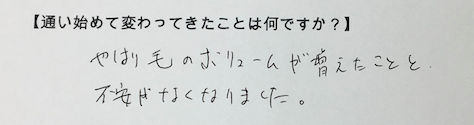 【通い始めて変わってきたことは何ですか？】
やはり毛のボリュームが増えたことと、
不安がなくなりました。